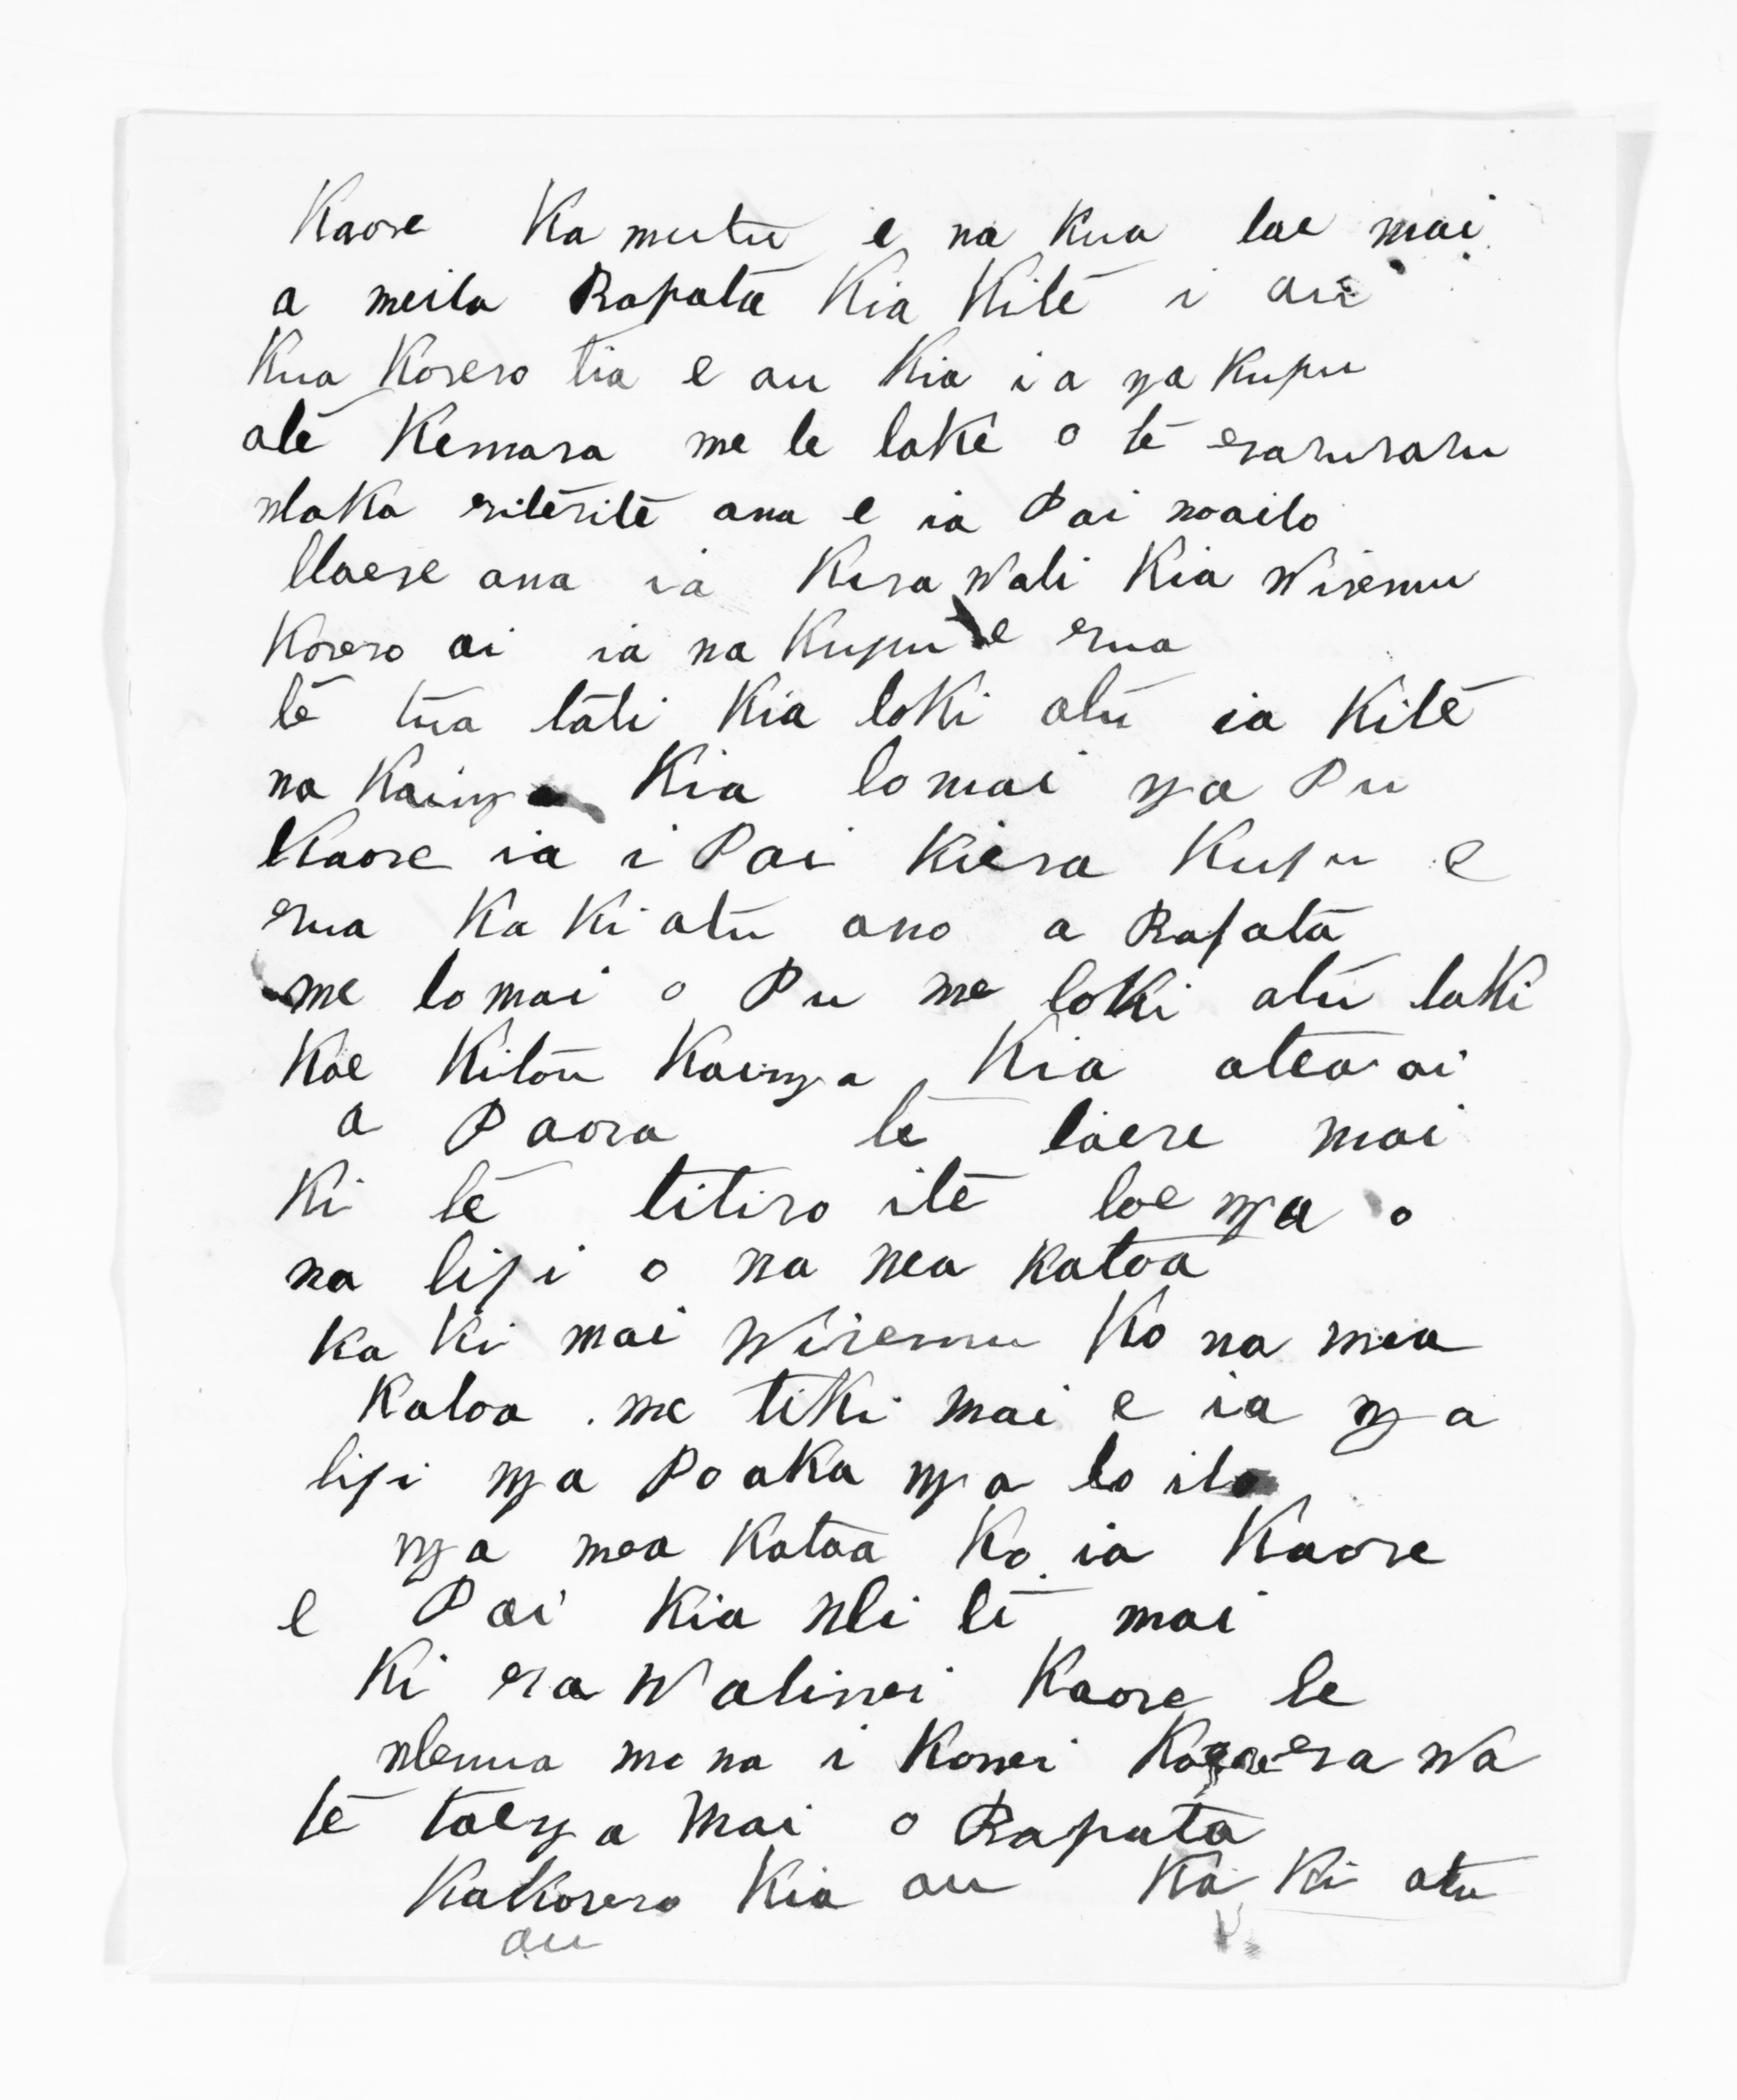 Kaore Ka mutu e na Kua tae mai
a meita Rapata Kia Kite i au
Kua Korero tia e au Kia ia nga Kupu
ate Kemara me te take o te raruraru
whaka riterite ana e ia Pai noaito
Haere ana ia Kera Wati Kia Wiremu
Korero ai ia na Kupu e rua
te tua tati Kia toki atu ia Kite
na Kainga Kia lomai nga Pu
Kaore ia i Pai Kiera Kupu e
rua Ka Ki atu ano a Rapata
me lomai o Pu me toki atu taki
Koe Kitou Kainga Kia atea ai
a Paora te taere mai
Ki te titiro ite toe nga o
na tipi o na mea Katoa
Ka Ki mai Wiremu Ko na mea
Katoa . me tiki mai e ia nga
tipi nga Poaka nga to ito
nga mea Katoa Ko ia Kaore
e Pai Kia whi ti mai
Ki era Watinei Kaore te
whenua mo na i Konei era Wa
te taenga Mai o Rapata
KaKorero Kia au Ka Ki atu
au